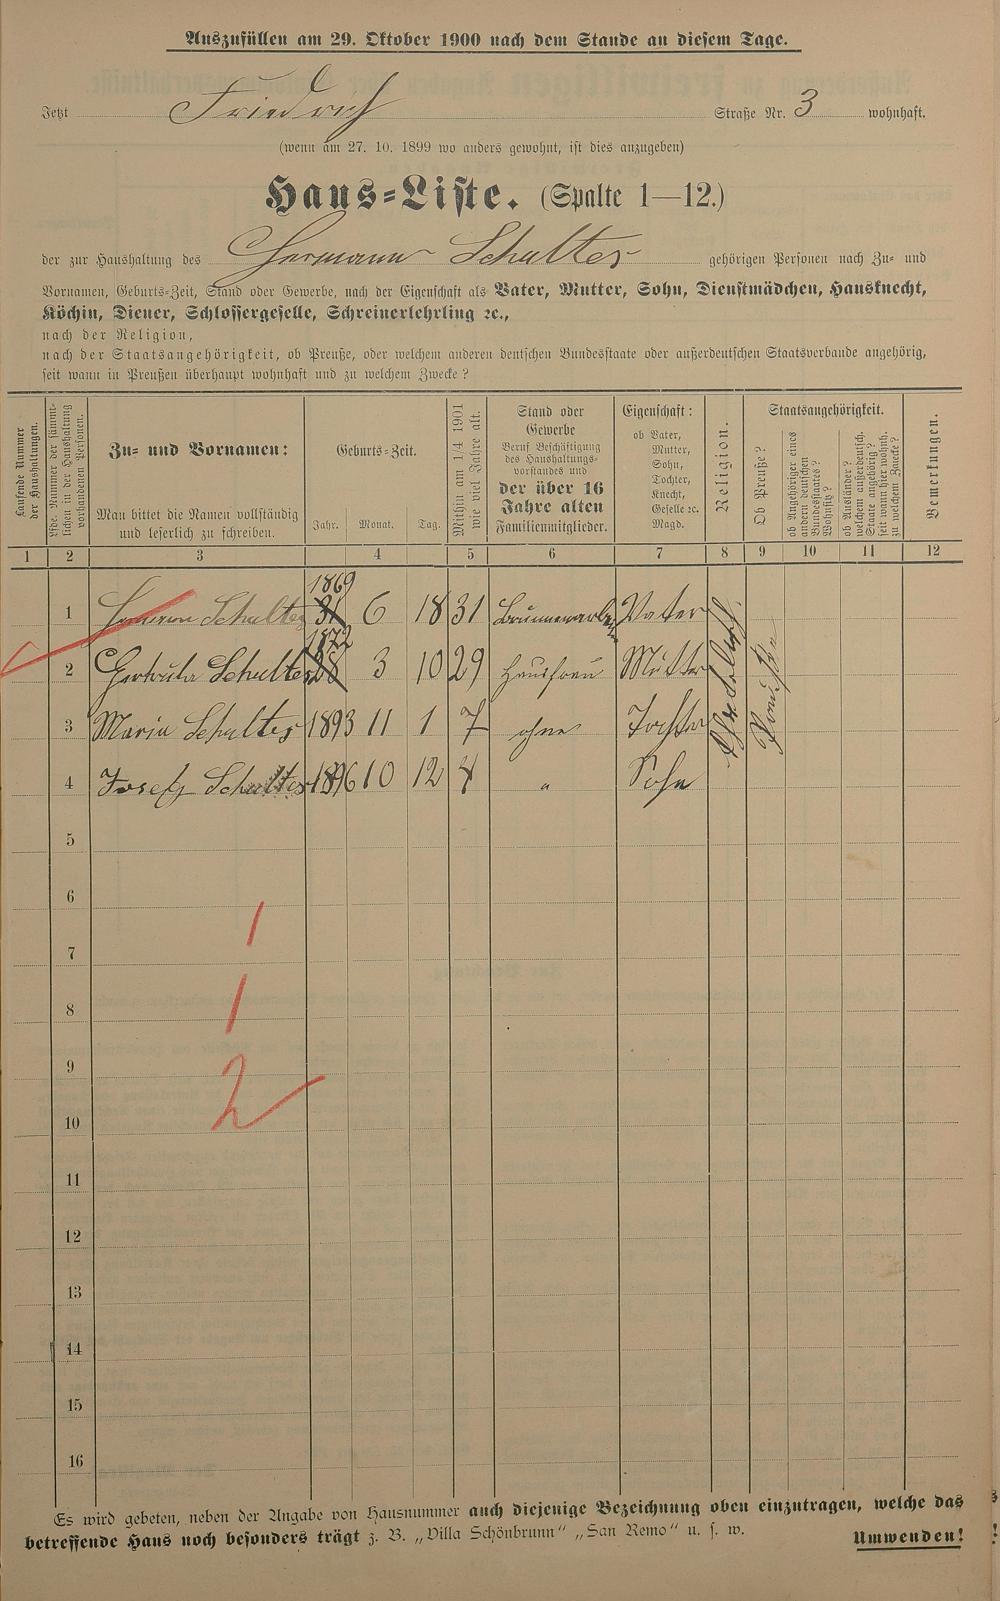 Auszufüllen am 29. Oktober 1900 nach dem Stande an diesem Tage.
Jetzt Friedrich Straße Nr. 3 wohnhaft.
(wenn am 27. 10. 1899 wo anders gewohnt, ist dies anzugeben)
Haus=Liste. (Spalte 1—12.)
der zur Haushaltung des Hermann Schultes gehörigen Personen nach Zu= und
Vornamen, Geburts=Zeit, Stand oder Gewerbe, nach der Eigenschaft als Vater, Mutter, Sohn, Dienstmädchen, Hausknecht,
Köchin, Diener, Schlossergeselle, Schreinerlehrling ꝛc.,
nach der Religion,
nach der Staatsangehörigkeit, ob Preuße, oder welchem anderen deutschen Bundesstaate oder außerdeutschen Staatsverbande angehörig,
seit wann in Preußen überhaupt wohnhaft und zu welchem Zwecke?
Laufende Nummer der Haushaltungen.
Lfde. Nummer der sämmtlichen in der Haushaltung vorhandenen Personen.
Zu= und Vornamen:
Man bittet die Namen vollständig
und leserlich zu schreiben.
Geburts=Zeit.
Jahr. Monat. Tag.
Mithin am 1/4 1901 wie viel Jahre alt.
Stand oder
Gewerbe
Beruf Beschäftigung
des Haushaltungs-
vorstandes und
der über 16
Jahre alten
Familienmitglieder.
Eigenschaft:
ob Vater,
Mutter,
Sohn,
Tochter,
Knecht,
Geselle ꝛc.
Magd.
Religion.
Staatsangehörigkeit.
Ob Preuße?
ob Angehöriger eines
andern deutschen
Bundesstaates?
Wohnsitz?
ob Ausländer?
welchem außerdeutsch.
Staate angehörig?
seit wann hier wohnh.
zu welchem Zwecke?
Bemerkungen.
1 2 3 4 5 6 7 8 9 10 11 12
1869
1 Hermann Schultes 31 6 18 31 Vater
1872
2 Gertruda Schultes 28 3 10 29 Hausfrau Mutter
3 Maria Schultes 1893 11 1 7 ohne Tochter
4 Josef Schultes 1896 10 12 4 " Sohn
5
6
1
7
1
8
9
2
10
11
12
13
14
15
16
Es wird gebeten, neben der Angabe von Hausnummer auch diejenige Bezeichnung oben einzutragen, welche das
betreffende Haus noch besonders trägt z. B. „Villa Schönbrunn“ „San Remo“ u. s. w. Umwenden!